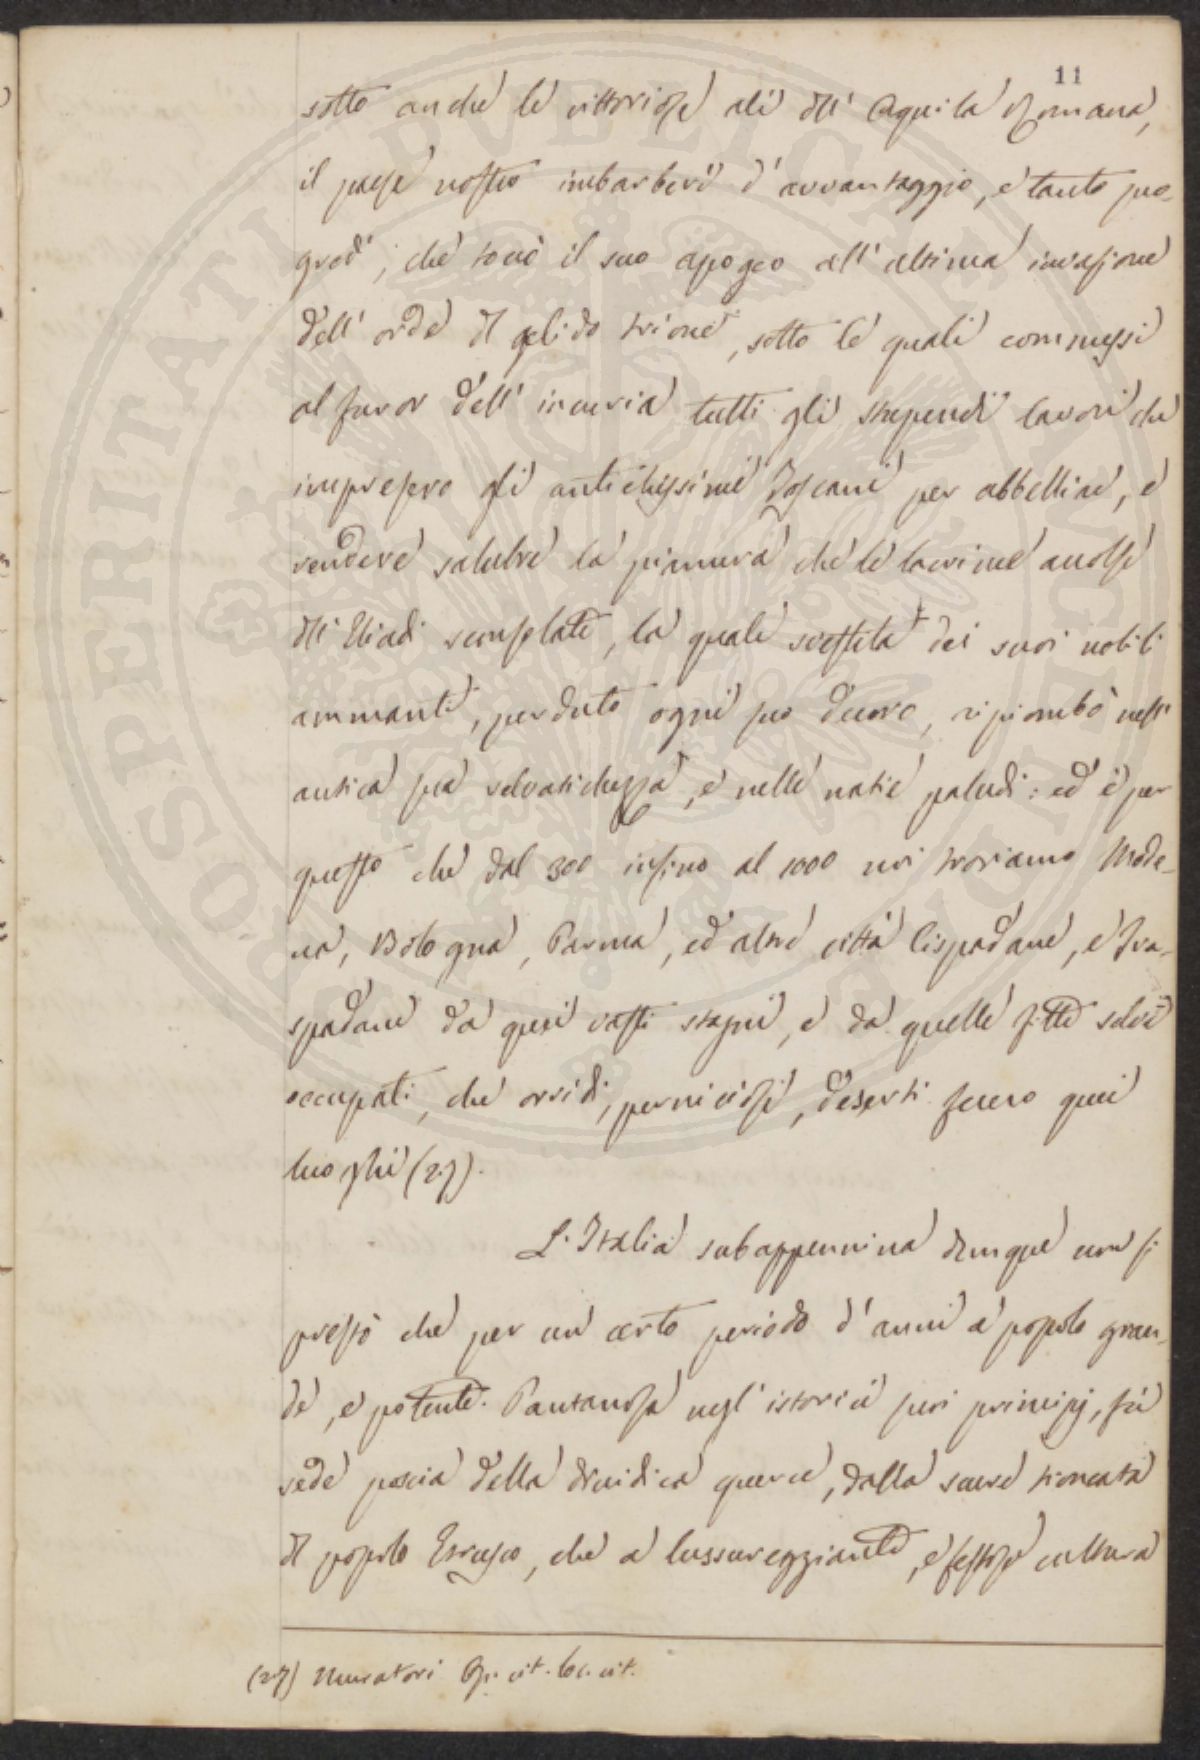 11
sotto anche le vittoriose ali dll' Aquila Romana,
il paese nostro imbarberì d' avvantaggio, e tanto pro-
gredì, che toccò il suo apogeo all' ultima invasione
dell' orde dl gelido trione, sotto le quali commessi
al furor dell' incuria tutti gli stupendi lavori che
impresero gli antichissimi Toscani per abbellire, e
rendere salubre la pianura che le lacrime accolse
dll' Eliadi sconsolate, la quale svestita dei suoi nobili
ammanti, perduto ogni suo decoro, ripiombò nell'
antica sua selvatichezza, e nelle natie paludi: ed è per
questo che dal 300 insino al 1000 noi troviamo Mode-
na, Bologna, Parma, ed altre città Cispadane, e Tra-
spadane da quei vasti stagni, e da quelle fitte selve
occupati, che orridi, perniciosi, deserti fecero quei
luoghi (27).
L' Italia subappennina dunque non si
prestò che per un certo periodo d' anni a popolo gran-
de, e potente. Pantanosa negl' istorici suoi principj, fù
sede poscia della druidica querce, dalla scure troncata
dl popolo Etrusco, che a lussureggiante, e festosa cultura
(27) Muratori Op. cit. loc. cit.
PROSPERITATI PVBLICAE